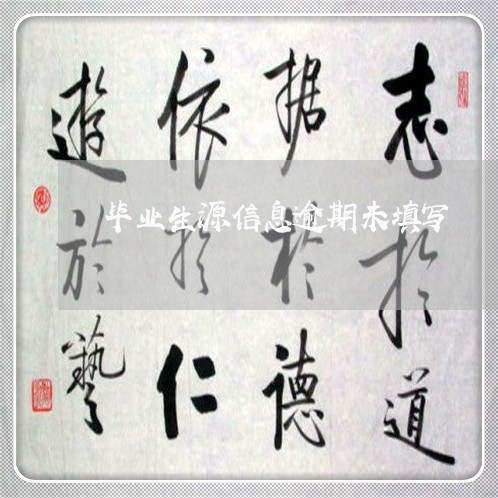 志於道
据於德
依於仁
遊於藝
毕业生源信息逾期未填写